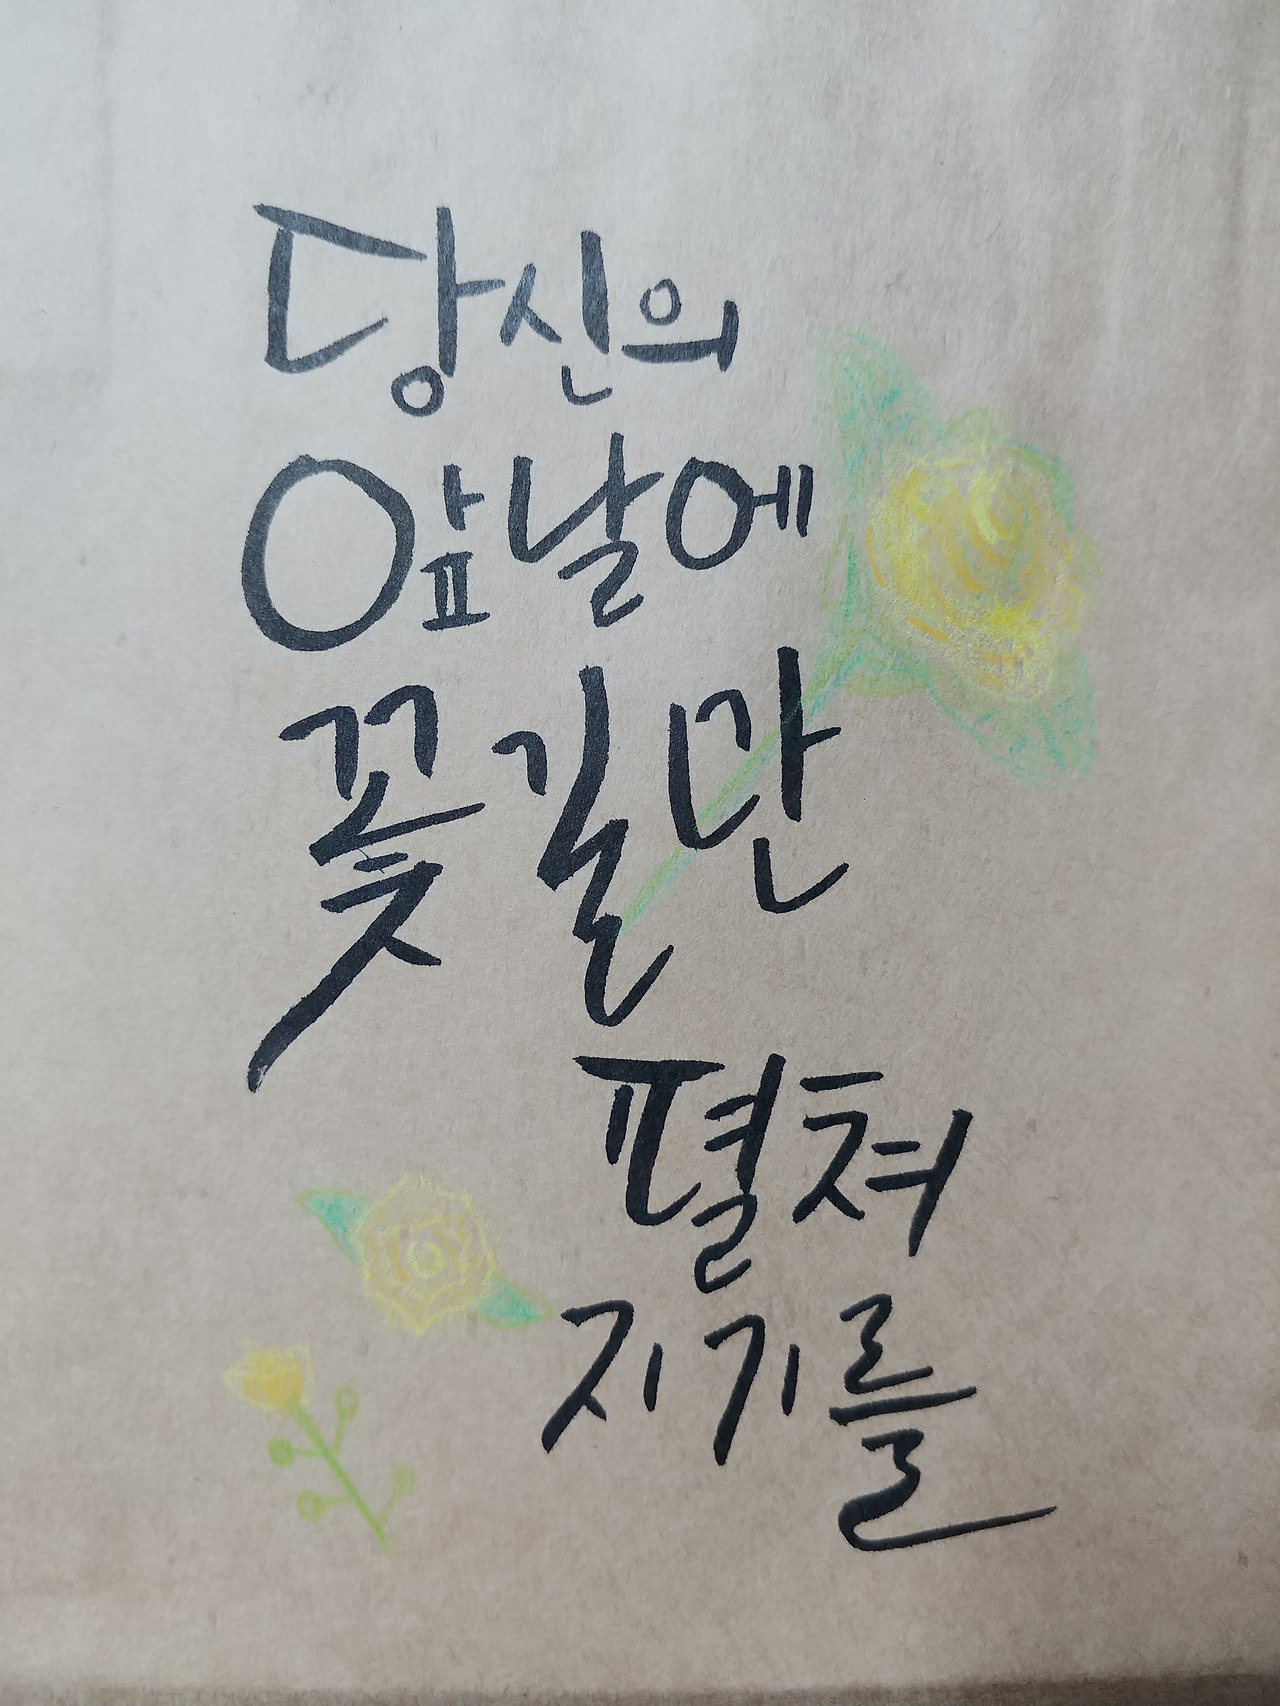 당신의
앞날에
꽃길만
펼쳐
지기를